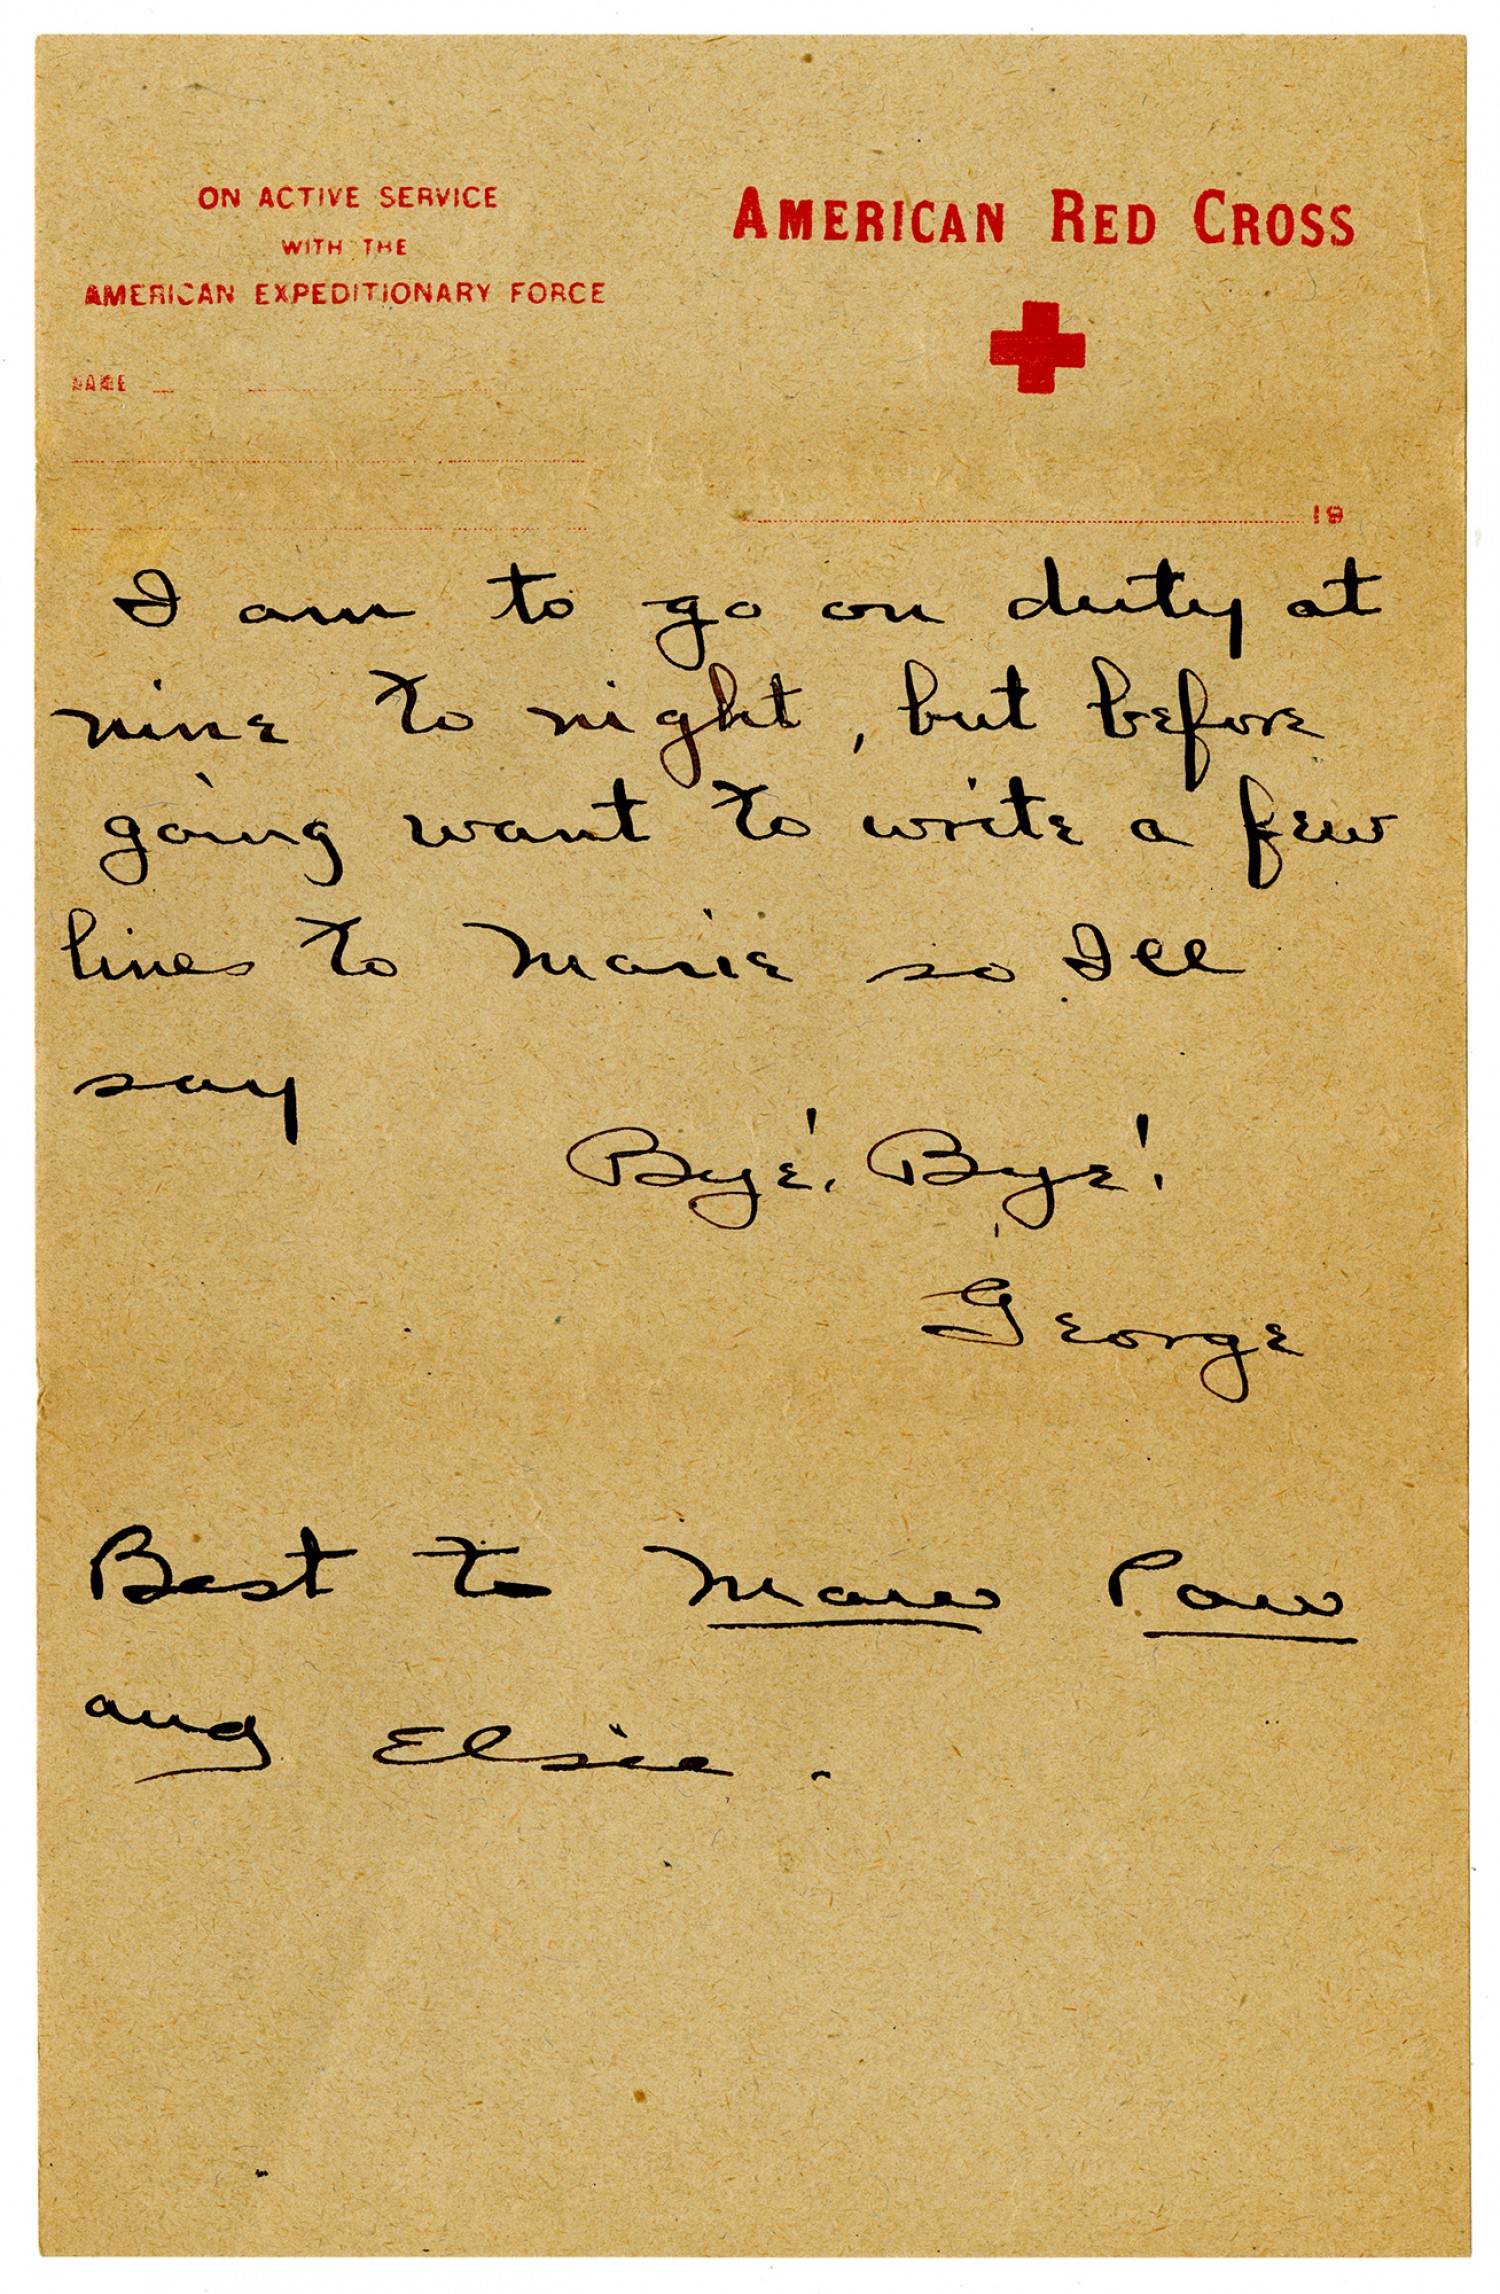 ON ACTIVE SERVICE
WITH THE
AMERICAN EXPEDITIONARY FORCE
AMERICAN RED CROSS
NAME
19
I am to go on duty at
nine to night, but before
going want to write a few
lines to Marie so Ill
say
Bye! Bye!
George
Best to Maw Paw
and Elsie.